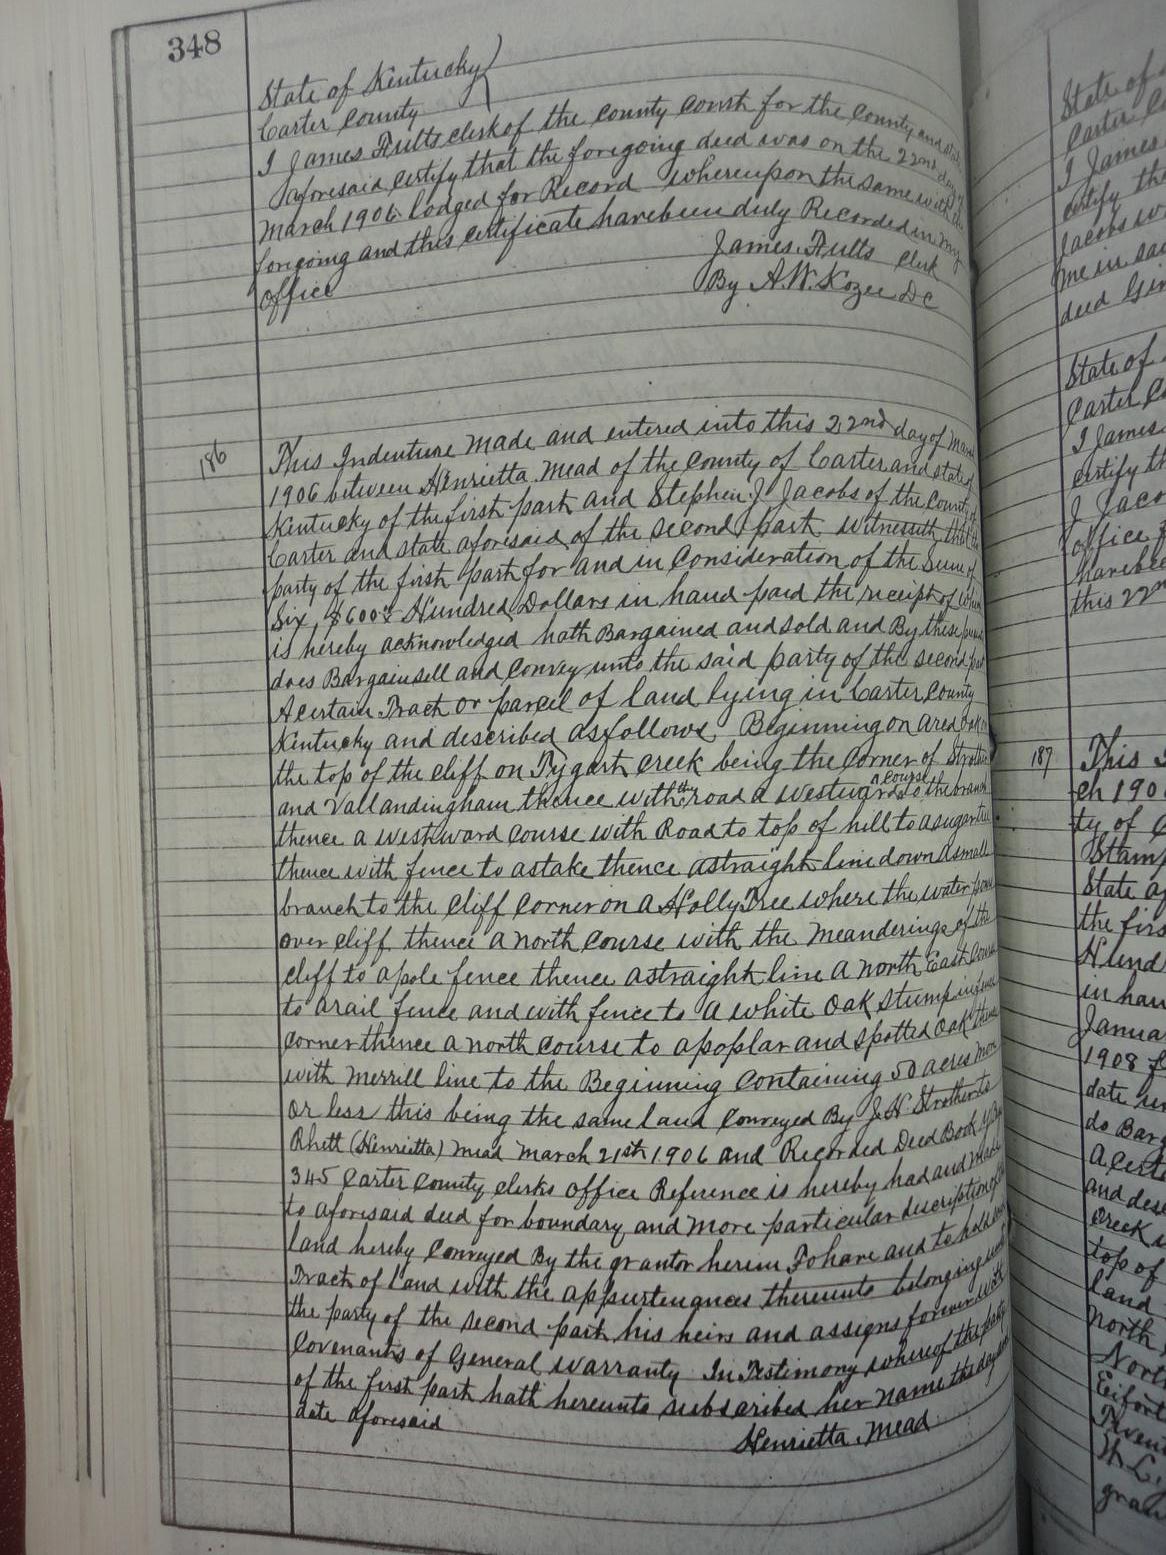 348
State of Kentucky
Carter County
I James Fults clerk of the County Court for the County and state
aforesaid certify that the foregoing deed was on the 22nd day of
March 1906 lodged for Record whereupon the same with the
foregoing and this certificate have been duly Recorded in my
office
James Fults Clerk
By A.W. Kozee DC
186
This Indenture made and entered into this 22nd day of March
1906 between Henrietta Mead of the County of Carter and state of
Kentucky of the first part and Stephen J. Jacobs of the County of
Carter and state aforesaid of the second part witnesseth that the
party of the first part for and in Consideration of the Sum of
Six $600 Hundred Dollars in hand paid the receipt of which
is hereby acknowledged hath Bargained and sold and By these
does Bargain sell and Convey unto the said party of the second part
A certain Tract or parcel of land lying in Carter County
Kentucky and described as follows. Beginning on a red oak
the top of the cliff on Tygart Creek being the Corner of
and Vallandingham thence with the road a westward course to the branch
thence a westward course with Road to top of hill to a sugar tree
thence with fence to a stake thence a straight line down a small
branch to the cliff Corner on a Holly Tree where the water pours
over cliff thence a north Course with the meanderings of the
cliff to a pole fence thence a straight line a north East Course
to a rail fence and with fence to a white Oak stump in fence
corner thence a north course to a poplar and spotted Oak thence
with Merrill line to the Beginning Containing 50 acres more
or less this being the same land Conveyed By J.H. Strother to
Rhett (Henrietta) Mead March 21st 1906 and Recorded Deed Book
345 Carter County clerks office Reference is hereby had and made
to aforesaid deed for boundary and more particular description of the
land hereby Conveyed By the grantor herein To have and to hold
Tract of land with the appurtenances thereunto belonging unto
the party of the second part his heirs and assigns forever with
Covenants of General warranty In Testimony whereof the party
of the first part hath hereunto subscribed her name the day and
date aforesaid
Henrietta Mead
State of
Carter
I James
certify the
Jacobs
me in
deed
State of
Carter
I James
certify th
J Jaco
office
have
this 22
187
This
ch 190
ty of
Stamp
State
the firs
Hund
in han
Januar
1908
date
do Barg
A certa
and des
creek
top of
land
North
North
Eifort
W L.
gran